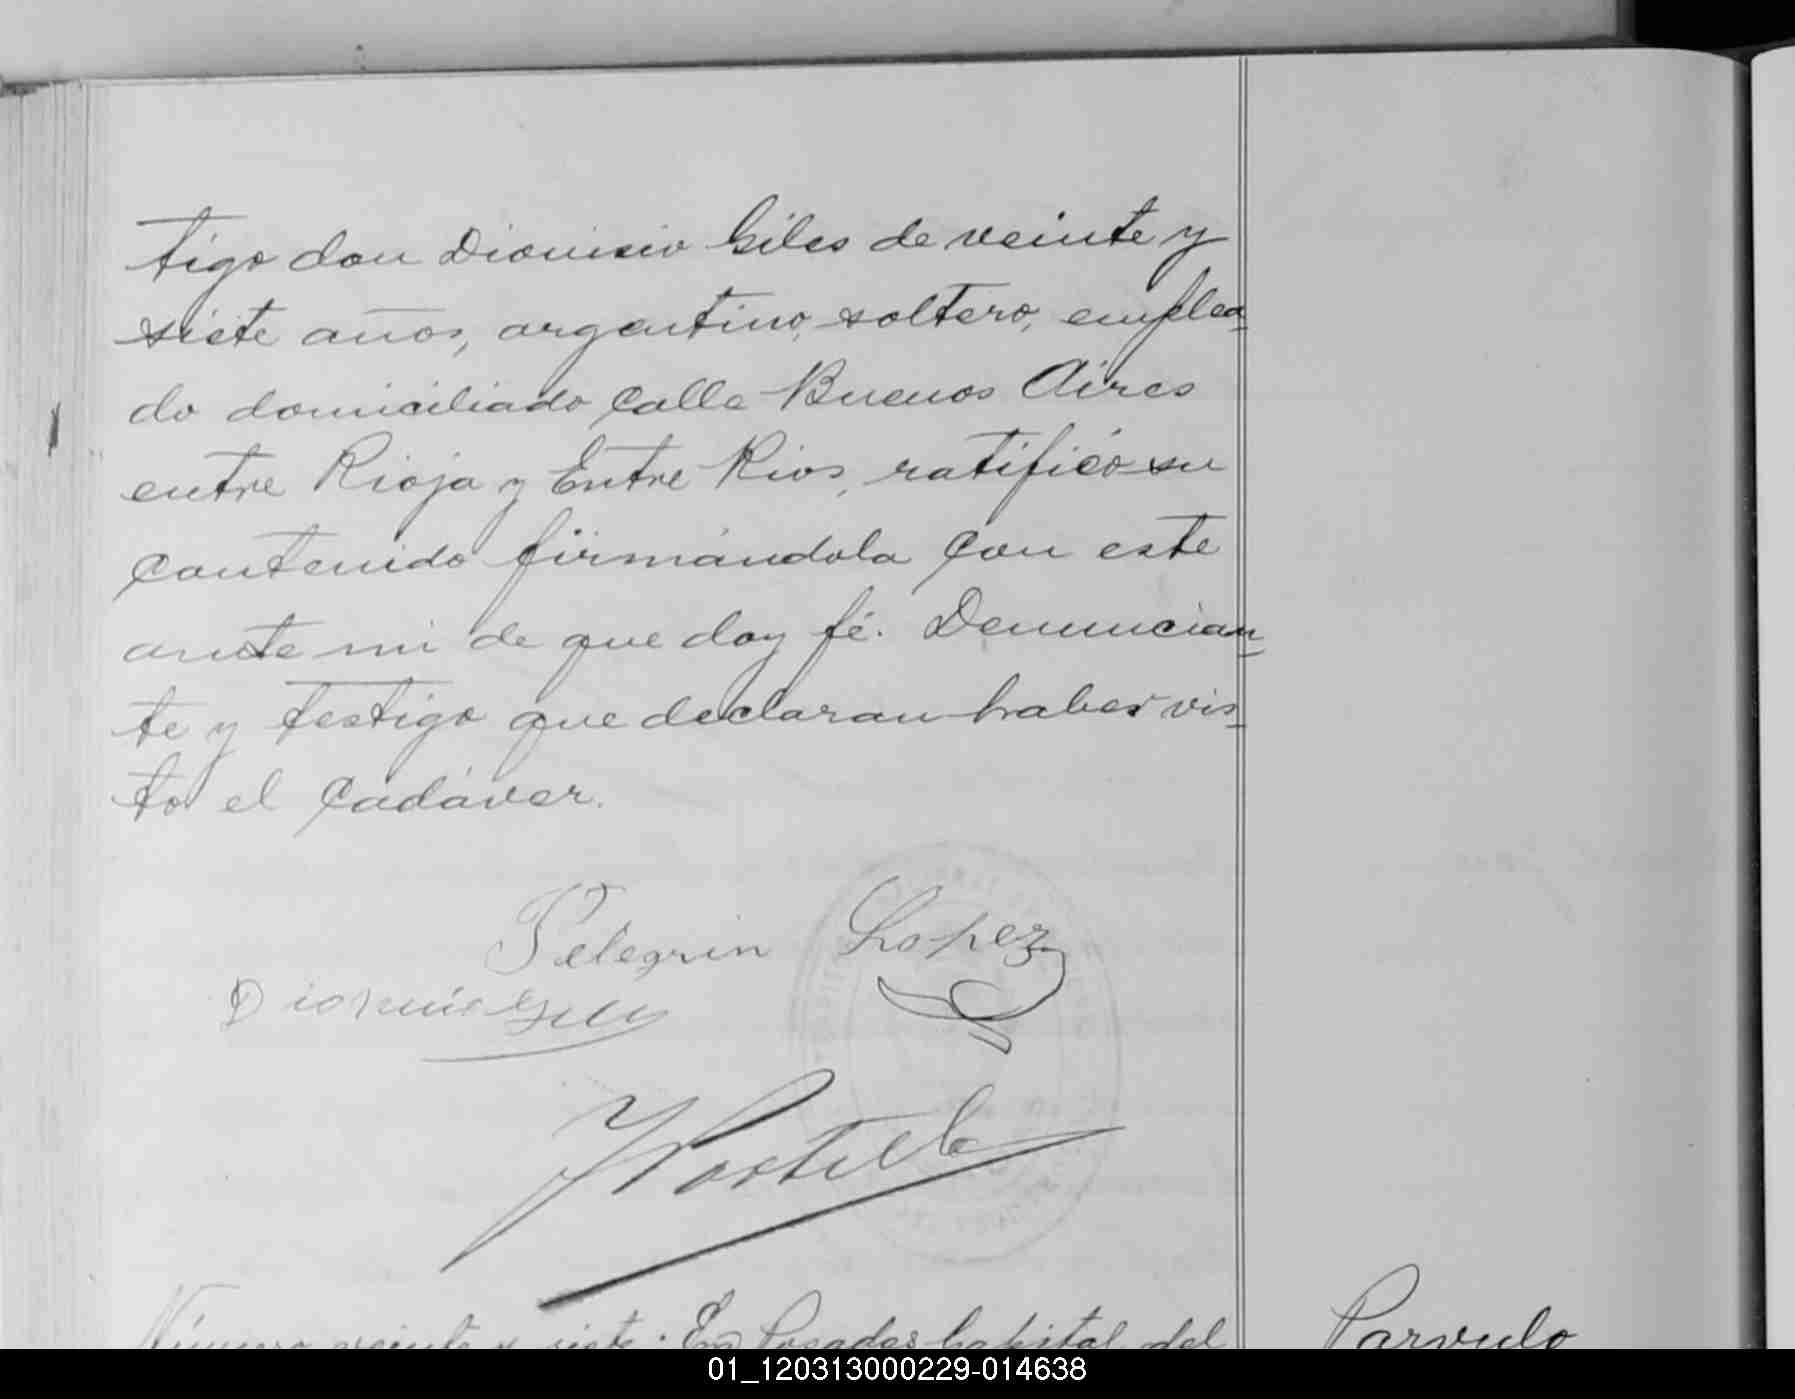 tigo don Dionisio Giles de veinte y
siete años, argentino, soltero, emplea-
do domiciliado calle Buenos Aires
entre Rioja y Entre Rios, ratificó su
contenido firmándola con este
ante mi de que doy fé. Denuncian-
te y testigo que declaran haber vis-
to el cadáver.
Pelegrin Lopez
Dionisio Giles
Número veinte y siete. En Posadas capital del
Parvulo
01_120313000229-014638